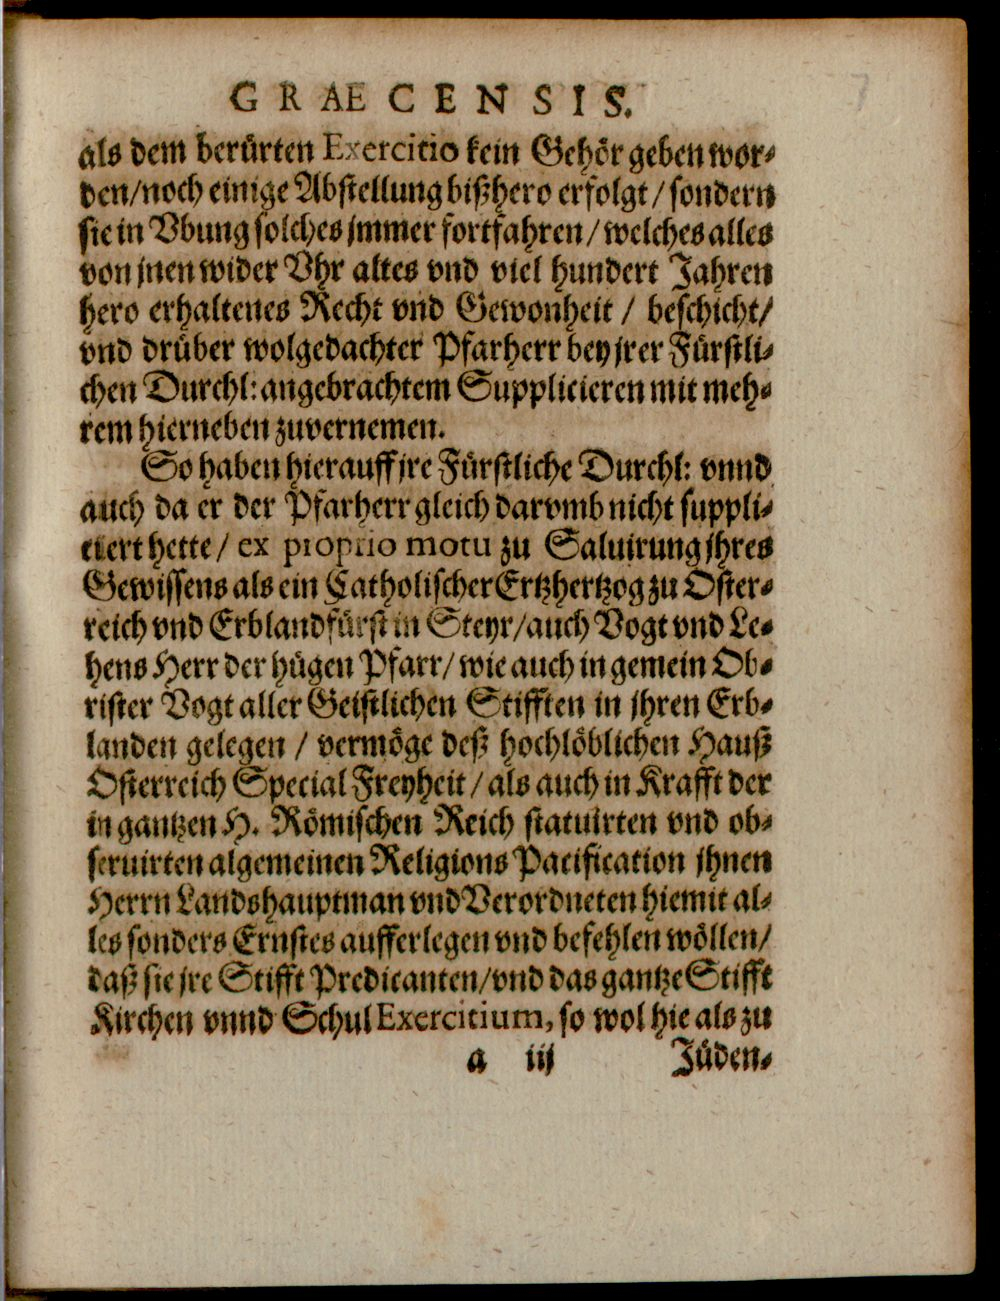 GRAECENSIS.
als dem berürten Exercitio kein Gehör geben wor-
den/noch einige Abstellung bißhero erfolgt/sondern
sie in Vbung solches jmmer fortfahren/welches alles
von jnen wider Vhr altes vnd viel hundert Jahren
hero erhaltenes Recht vnd Gewonheit / beschicht/
vnd drüber wolgedachter Pfarherr bey jrer Fürstli-
chen Durchl: angebrachtem Supplicieren mit meh-
rem hierneben zuvernemen.
So haben hierauff jre Fürstliche Durchl: vnnd
auch da er der Pfarherr gleich darvmb nicht suppli-
ciert hette/ ex proprio motu zu Saluirung jhres
Gewissens als ein Catholischer Ertzhertzog zu Oster-
reich vnd Erblandfürst in Steyr/auch Vogt vnd Le-
hens Herr der hügen Pfarr/ wie auch in gemein Ob-
rister Vogt aller Geistlichen Stifften in jhren Erb-
landen gelegen / vermöge deß hochlöblichen Hauß
Osterreich Special Freyheit / als auch in Krafft der
in gantzen H. Römischen Reich statuirten vnd ob-
seruirten algemeinen Religions Pacification jhnen
Herrn Landshauptman vnd Verordneten hiemit al-
les sonders Ernstes aufferlegen vnd befehlen wöllen/
daß sie jre Stifft Predicanten/vnd das gantze Stifft
Kirchen vnnd Schul Exercitium, so wol hie als zu
a iij Jüden-